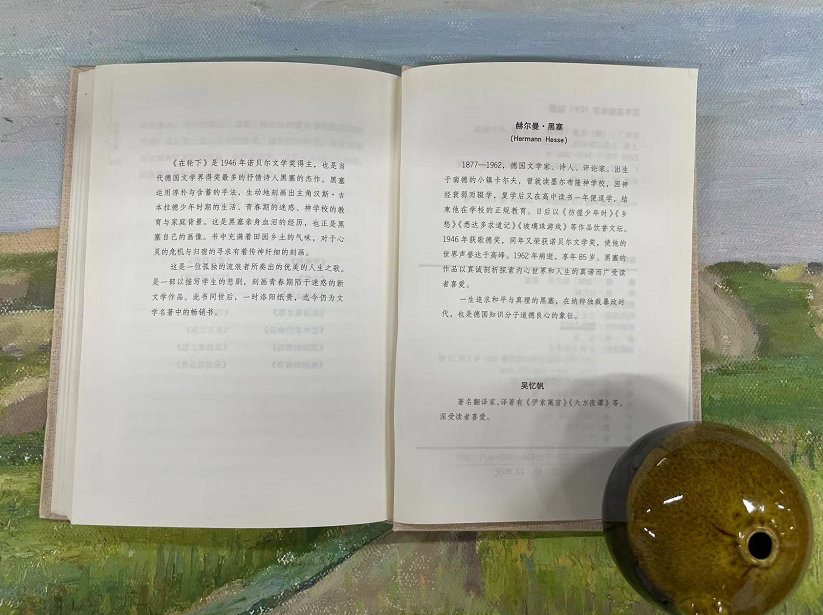 《在轮下》是1946年诺贝尔文学奖得主，也是当
代德国文学界得奖最多的抒情诗人黑塞的杰作。黑塞
运用淳朴与含蓄的手法，生动地刻画出主角汉斯·吉
本拉德少年时期的生活、青春期的迷惑、神学校的教
育与家庭背景。这是黑塞亲身血泪的经历，也正是黑
塞自己的画像。书中充满着田园乡土的气味，对于心
灵的危机与归宿的寻求有着传神纤细的刻画。
这是一位孤独的流浪者所奏出的优美的人生之歌。
是一部以描写学生的悲剧，刻画青春期陷于迷惑的新
文学作品。此书问世后，一时洛阳纸贵，迄今仍为文
学名著中的畅销书。
赫尔曼·黑塞
(Hermann Hesse)
1877—1962，德国文学家、诗人、评论家。出生
于南德的小镇卡尔夫，曾就读墨尔布隆神学校，因神
经衰弱而辍学，复学后又在高中读书一年便退学，结
束他在学校的正规教育。日后以《彷徨少年时》《乡
愁》《悉达多求道记》《玻璃珠游戏》等作品饮誉文坛。
1946年获歌德奖，同年又荣获诺贝尔文学奖，使他的
世界声誉达于高峰。1962年病逝，享年85岁。黑塞的
作品以真诚剖析探索内心世界和人生的真谛而广受读
者喜爱。
一生追求和平与真理的黑塞，在纳粹独裁暴政时
代，也是德国知识分子道德良心的象征。
吴忆帆
著名翻译家，译著有《伊索寓言》《天方夜谭》等，
深受读者喜爱。